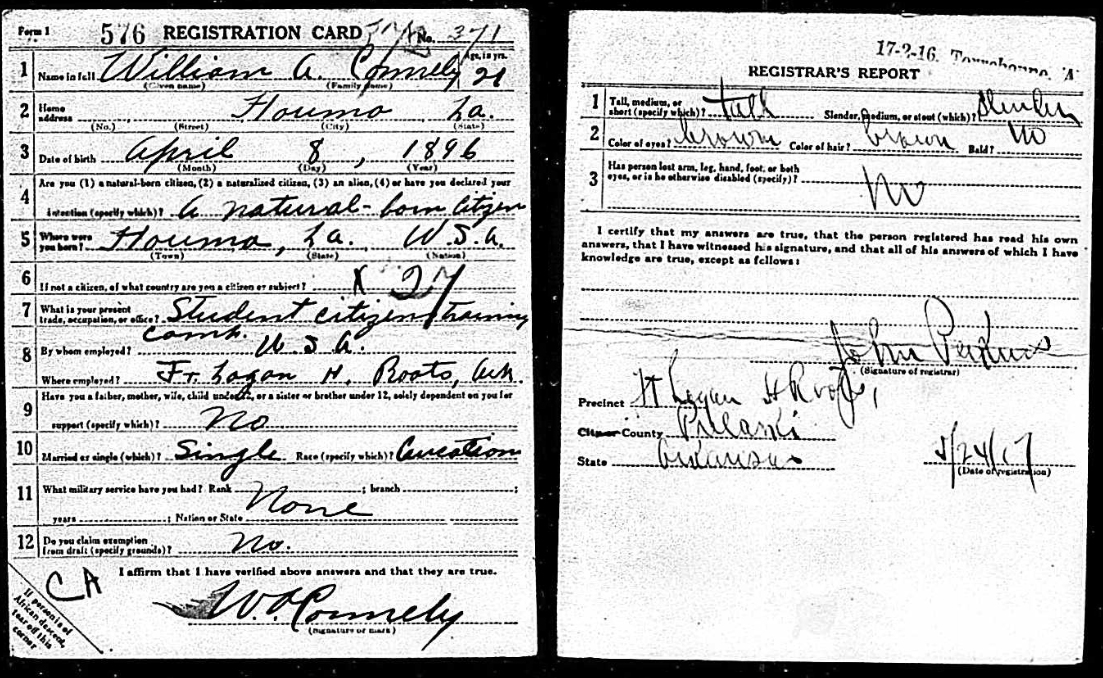 Form 1 576 REGISTRATION CARD No. 371
1 Name in full William A. Connely Age, in yrs. 21
(Given name) (Family name)
2 Home address Houma La.
(No.) (Street) (City) (State)
3 Date of birth April 8, 1896
(Month) (Day) (Year)
4 Are you (1) a natural-born citizen, (2) a naturalized citizen, (3) an alien, (4) or have you declared your
intention (specify which)? A natural-born citizen
5 Where were you born? Houma, La. U.S.A.
(Town) (State) (Nation)
6 If not a citizen, of what country are you a citizen or subject? X 27
7 What is your present trade, occupation, or office? Student citizens training
camp.
8 By whom employed? U S A.
Where employed? Ft. Logan H. Roots, Ark.
9 Have you a father, mother, wife, child under 12, or a sister or brother under 12, solely dependent on you for
support (specify which)? No
10 Married or single (which)? Single Race (specify which)? Caucation
11 What military service have you had? Rank ; branch ;
years ; Nation or State None
12 Do you claim exemption from draft (specify grounds)? No.
I affirm that I have verified above answers and that they are true.
CA
W. A. Connely
(Signature or mark)
If person is of African descent, tear off this corner
17-2-16. Terrebonne, A
REGISTRAR'S REPORT
1 Tall, medium, or short (specify which)? tall Slender, medium, or stout (which)? Slender
2 Color of eyes? brown Color of hair? brown Bald? No
3 Has person lost arm, leg, hand, foot, or both eyes, or is he otherwise disabled (specify)? No
I certify that my answers are true, that the person registered has read his own
answers, that I have witnessed his signature, and that all of his answers of which I have
knowledge are true, except as follows:
John
(Signature of registrar)
Precinct Ft Logan H Roots,
City or County Pulaski
State Arkansas
5/24/17
(Date of registration)